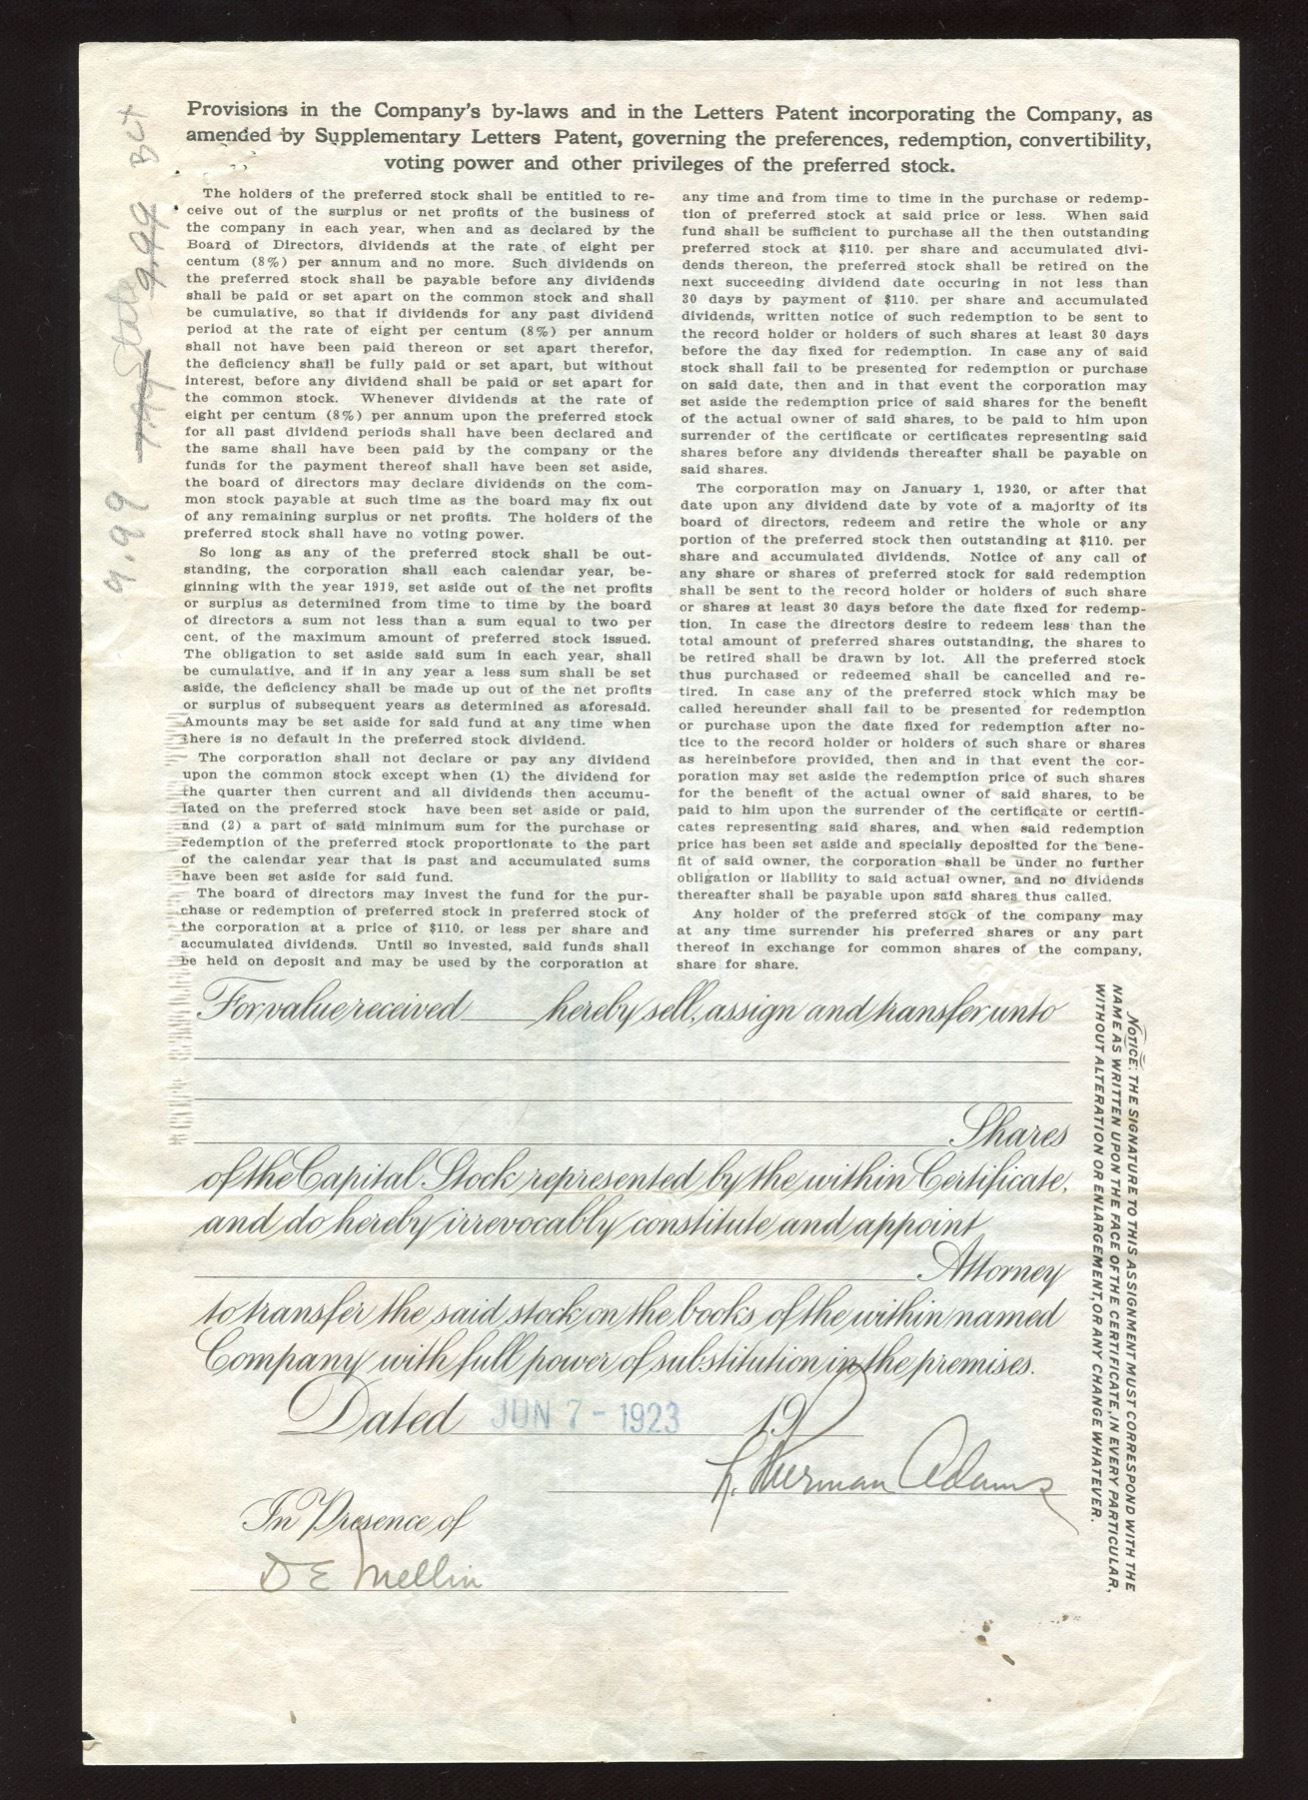 Provisions in the Company's by-laws and in the Letters Patent incorporating the Company, as
amended by Supplementary Letters Patent, governing the preferences, redemption, convertibility,
voting power and other privileges of the preferred stock.
The holders of the preferred stock shall be entitled to re-
ceive out of the surplus or net profits of the business of
the company in each year, when and as declared by the
Board of Directors, dividends at the rate of eight per
centum (8%) per annum and no more. Such dividends on
the preferred stock shall be payable before any dividends
shall be paid or set apart on the common stock and shall
be cumulative, so that if dividends for any past dividend
period at the rate of eight per centum (8%) per annum
shall not have been paid thereon or set apart therefor,
the deficiency shall be fully paid or set apart, but without
interest, before any dividend shall be paid or set apart for
the common stock. Whenever dividends at the rate of
eight per centum (8%) per annum upon the preferred stock
for all past dividend periods shall have been declared and
the same shall have been paid by the company or the
funds for the payment thereof shall have been set aside,
the board of directors may declare dividends on the com-
mon stock payable at such time as the board may fix out
of any remaining surplus or net profits. The holders of the
preferred stock shall have no voting power.
So long as any of the preferred stock shall be out-
standing, the corporation shall each calendar year, be-
ginning with the year 1919, set aside out of the net profits
or surplus as determined from time to time by the board
of directors a sum not less than a sum equal to two per
cent. of the maximum amount of preferred stock issued.
The obligation to set aside said sum in each year, shall
be cumulative, and if in any year a less sum shall be set
aside, the deficiency shall be made up out of the net profits
or surplus of subsequent years as determined as aforesaid.
Amounts may be set aside for said fund at any time when
there is no default in the preferred stock dividend.
The corporation shall not declare or pay any dividend
upon the common stock except when (1) the dividend for
the quarter then current and all dividends then accumu-
lated on the preferred stock have been set aside or paid,
and (2) a part of said minimum sum for the purchase or
redemption of the preferred stock proportionate to the part
of the calendar year that is past and accumulated sums
have been set aside for said fund.
The board of directors may invest the fund for the pur-
chase or redemption of preferred stock in preferred stock of
the corporation at a price of $110. or less per share and
accumulated dividends. Until so invested, said funds shall
be held on deposit and may be used by the corporation at
any time and from time to time in the purchase or redemp-
tion of preferred stock at said price or less. When said
fund shall be sufficient to purchase all the then outstanding
preferred stock at $110. per share and accumulated divi-
dends thereon, the preferred stock shall be retired on the
next succeeding dividend date occuring in not less than
30 days by payment of $110. per share and accumulated
dividends, written notice of such redemption to be sent to
the record holder or holders of such shares at least 30 days
before the day fixed for redemption. In case any of said
stock shall fail to be presented for redemption or purchase
on said date, then and in that event the corporation may
set aside the redemption price of said shares for the benefit
of the actual owner of said shares, to be paid to him upon
surrender of the certificate or certificates representing said
shares before any dividends thereafter shall be payable on
said shares.
The corporation may on January 1, 1920, or after that
date upon any dividend date by vote of a majority of its
board of directors, redeem and retire the whole or any
portion of the preferred stock then outstanding at $110. per
share and accumulated dividends. Notice of any call of
any share or shares of preferred stock for said redemption
shall be sent to the record holder or holders of such share
or shares at least 30 days before the date fixed for redemp-
tion. In case the directors desire to redeem less than the
total amount of preferred shares outstanding, the shares to
be retired shall be drawn by lot. All the preferred stock
thus purchased or redeemed shall be cancelled and re-
tired. In case any of the preferred stock which may be
called hereunder shall fail to be presented for redemption
or purchase upon the date fixed for redemption after no-
tice to the record holder or holders of such share or shares
as hereinbefore provided, then and in that event the cor-
poration may set aside the redemption price of such shares
for the benefit of the actual owner of said shares, to be
paid to him upon the surrender of the certificate or certifi-
cates representing said shares, and when said redemption
price has been set aside and specially deposited for the bene-
fit of said owner, the corporation shall be under no further
obligation or liability to said actual owner, and no dividends
thereafter shall be payable upon said shares thus called.
Any holder of the preferred stock of the company may
at any time surrender his preferred shares or any part
thereof in exchange for common shares of the company,
share for share.
For value received hereby sell, assign and transfer unto
Shares
of the Capital Stock represented by the within Certificate,
and do hereby irrevocably constitute and appoint
Attorney
to transfer the said stock on the books of the within named
Company with full power of substitution in the premises.
Dated JUN 7 - 1923 19
L. Sherman Adams
In Presence of
D E Mellin
NOTICE: THE SIGNATURE TO THIS ASSIGNMENT MUST CORRESPOND WITH THE
NAME AS WRITTEN UPON THE FACE OF THE CERTIFICATE, IN EVERY PARTICULAR,
WITHOUT ALTERATION OR ENLARGEMENT, OR ANY CHANGE WHATEVER.
9.99
9.99